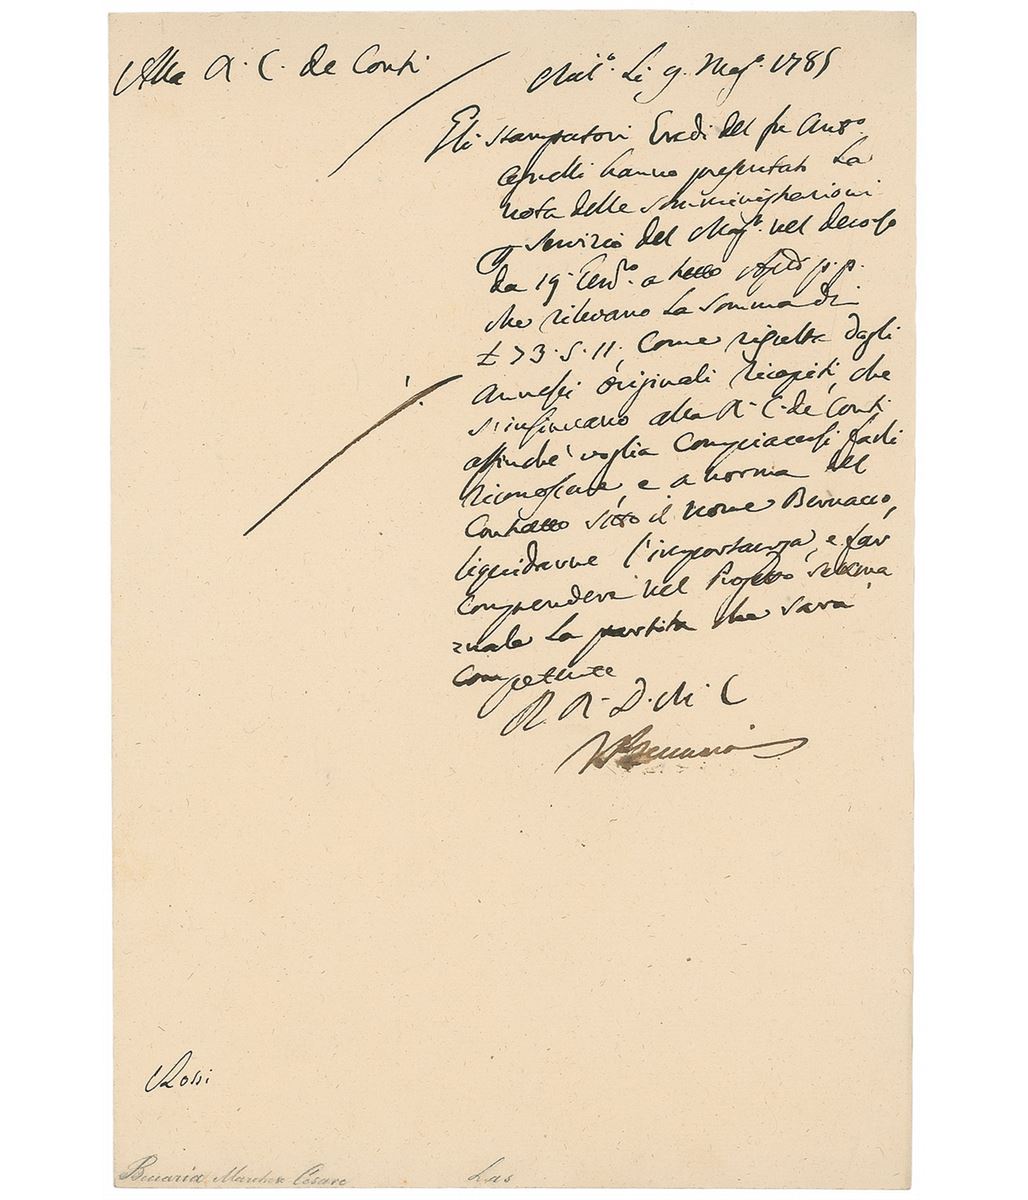 Alla R. C. de Conti
Mil.º Li 9. Mag.º 1785
Gli stampatori Eredi del fu Ant.º
Agnelli hanno presentato la
nota delle somministrazioni
servizio del Mag.º nel decorso
da 19. Gen.º a tutto p. p.
che rilevano la somma di
£ 73. 5. 11, Come risulta dagli
Annessi originali Ricapiti, che
s'insinuano alla R. C. de Conti
affinché voglia Compiacersi farli
riconoscere e a norma del
Contratto sotto il nome Bernacco,
liquidarne l'importanza, e far
comprendere nel Progetto settima
nale la partita che sarà
competente
R. R. D. M. C
Beccaria
Rossi
Beccaria Marchese Cesare
Las